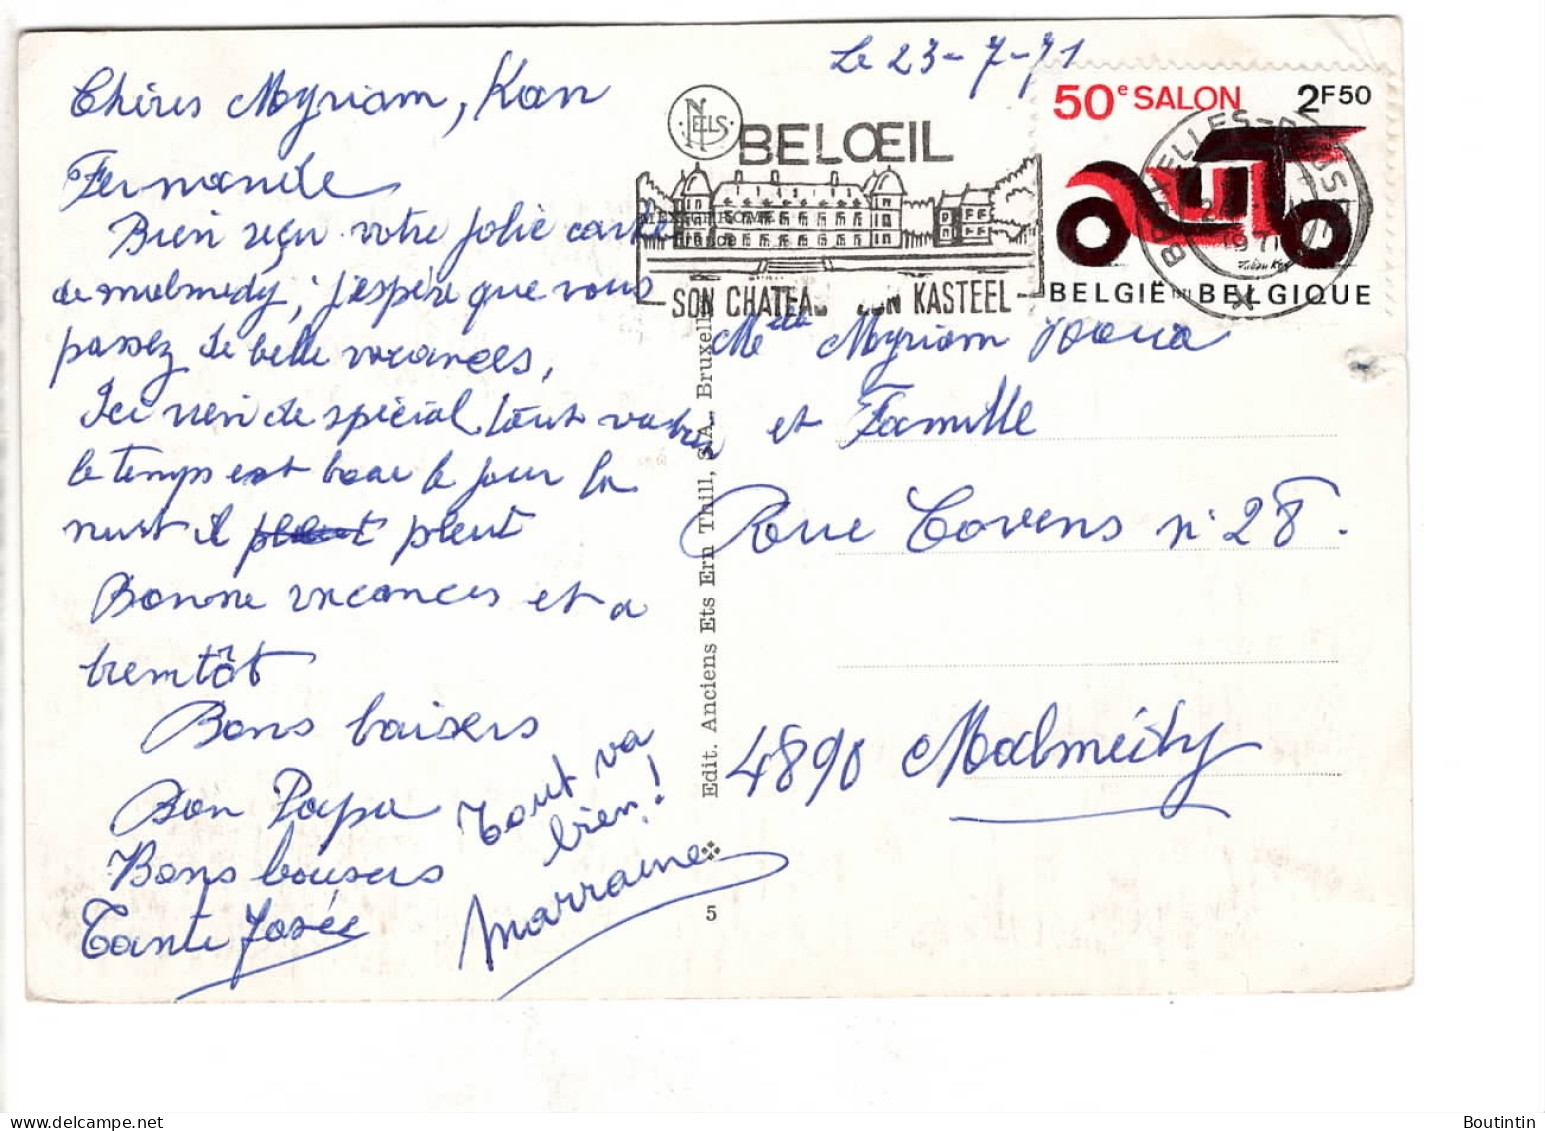 Le 23-7-71
Chéres Myriam, Kan
Fernande
Bien reçu votre jolie carte
de malmedy, j'espére que vous
passez de belle vacances,
Ici rien de spécial, tout va bien
le temps est beau le jour la
nuit il pleut pleut
Bonne vacances et a
bientôt
Bons baisers
Bon Papa
Tout va
bien!
Bons baisers
Tante Josée
Marraine
NELS
BELŒIL
SON CHATEAU KASTEEL
50e SALON 2F50
AUTO
BELGIË BELGIQUE
BRUXELLES
1971
Melle Myriam
et Famille
Rue Covens n° 28.
4890 Malmédy
Edit. Anciens Ets Ern Thill, S.A., Bruxelles
5
delcampe.net
Boutintin